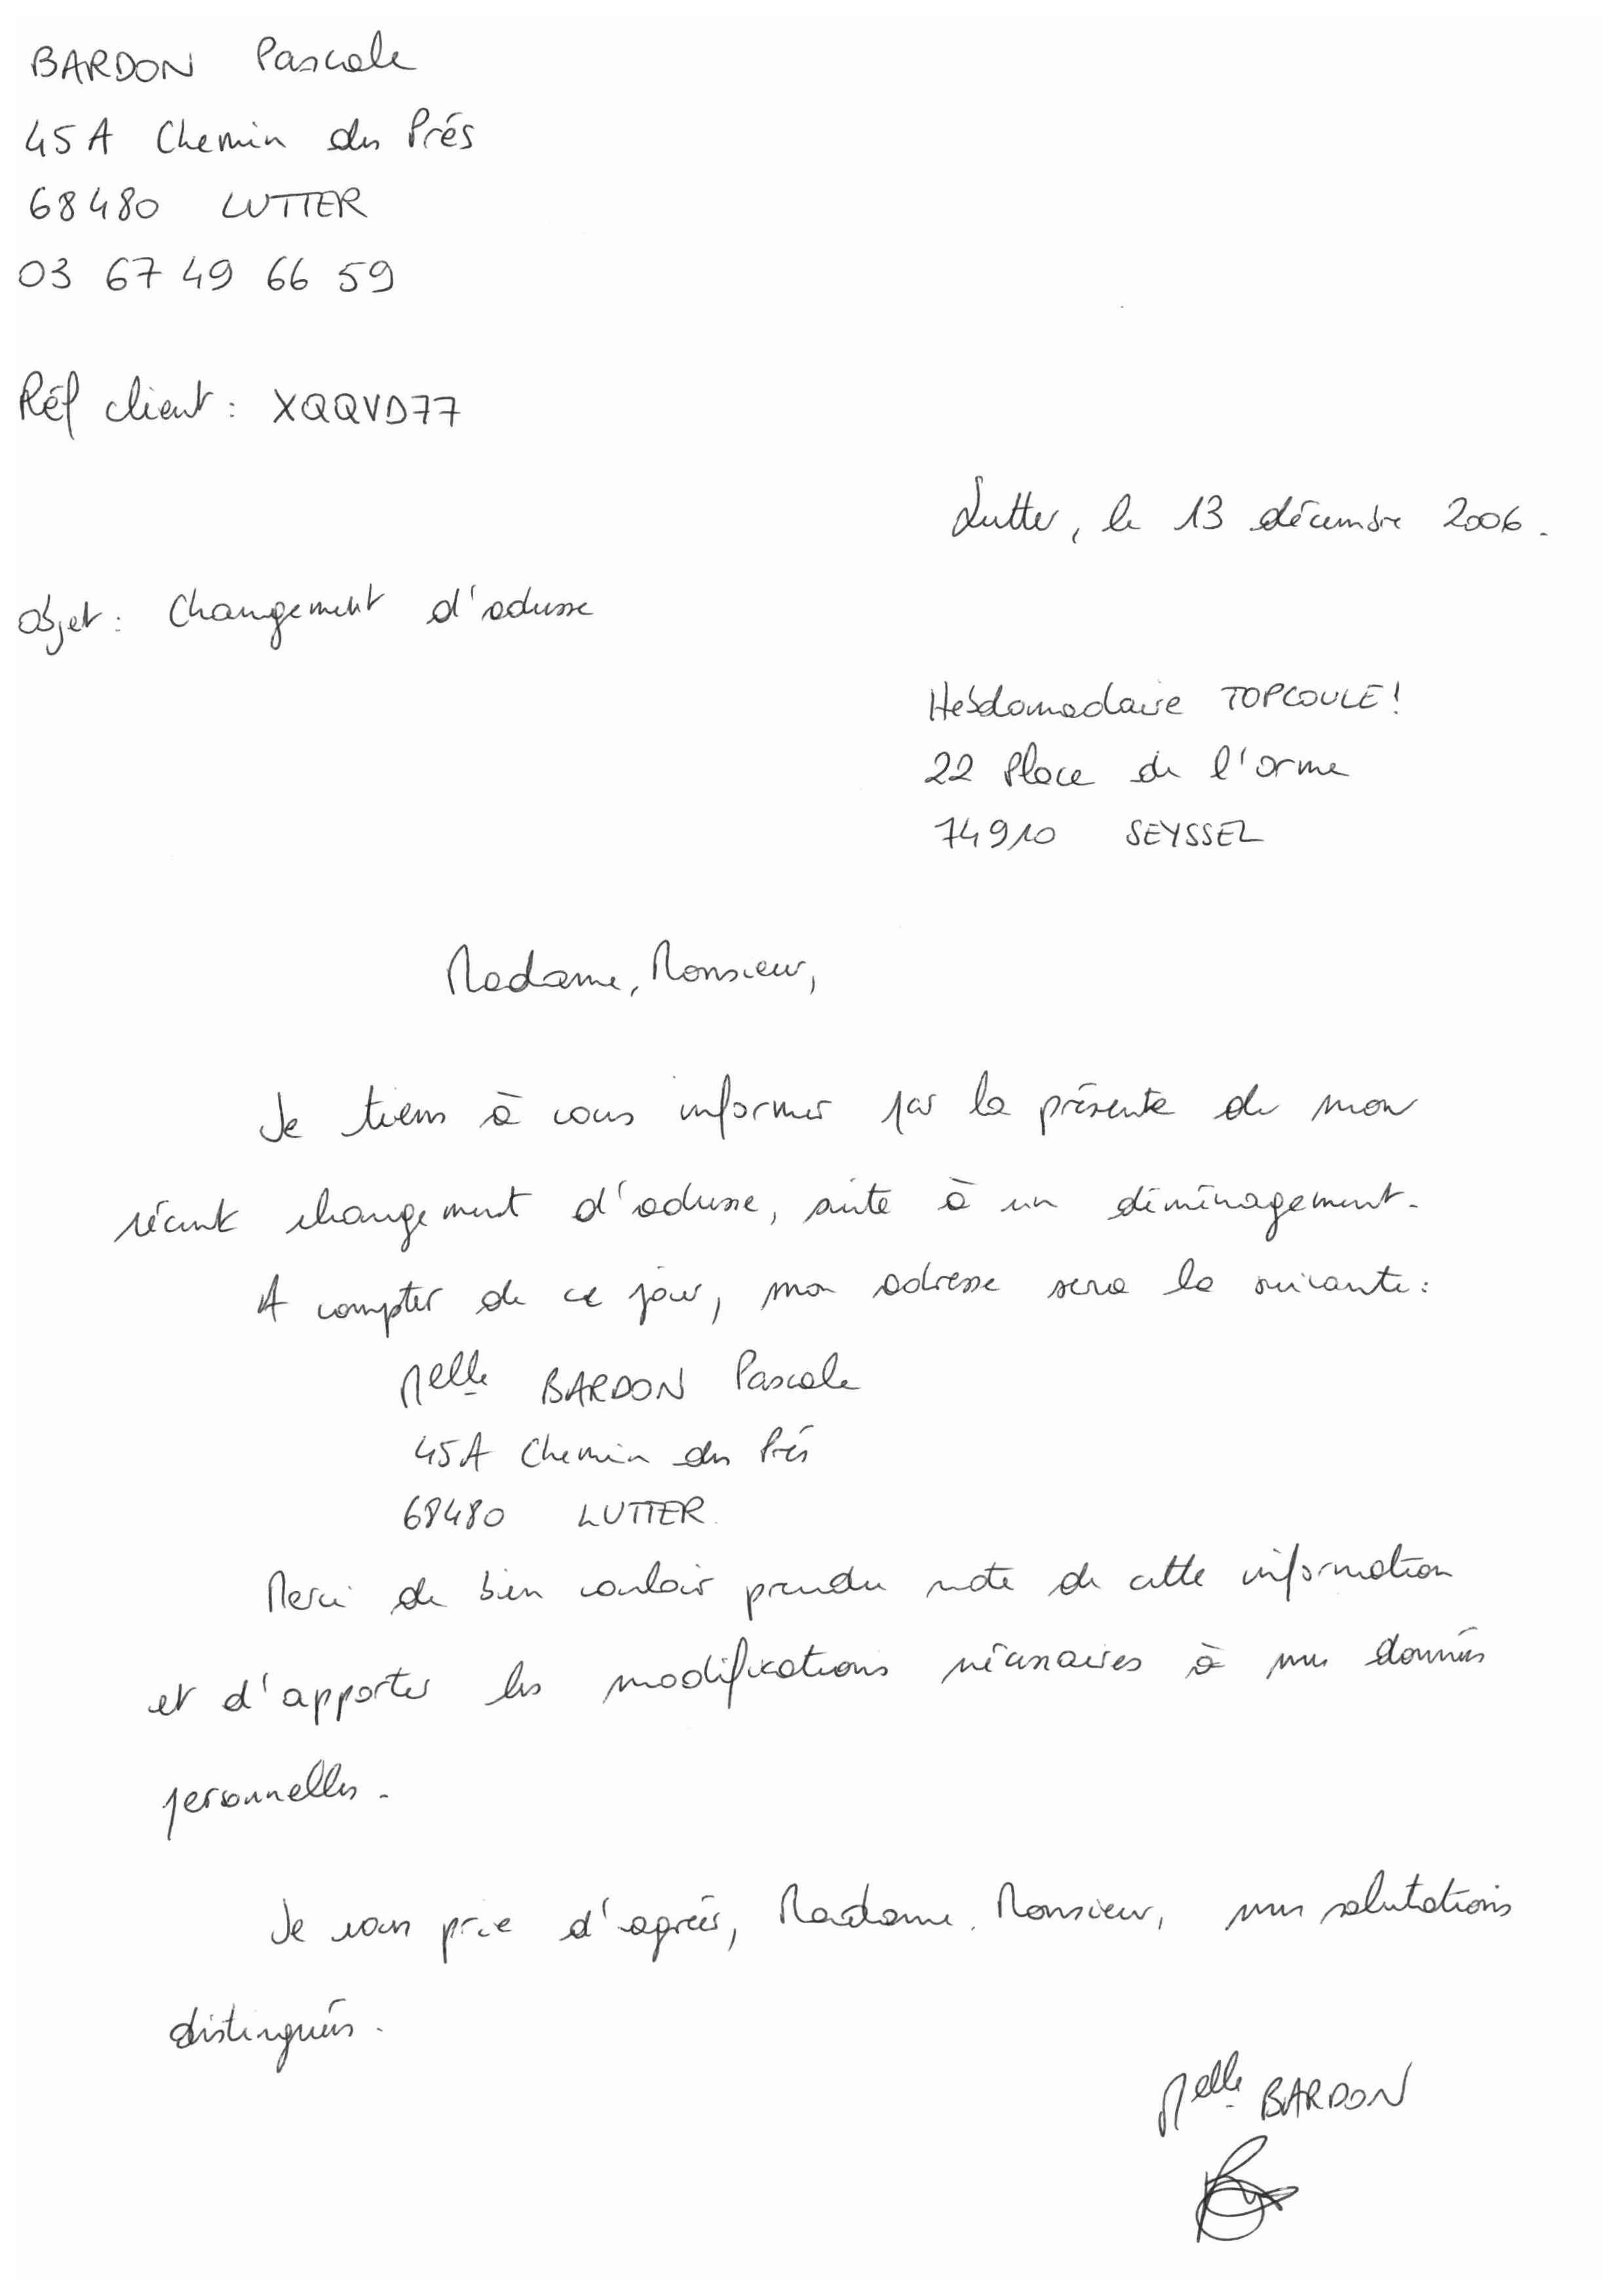 BARDON Pascale
45A Chemin des Prés
68480 LUTTER
03 67 49 66 59
Réf client : XQQVD77
Lutter, le 13 décembre 2006.
Objet : Changement d'adresse
Hebdomadaire TOPCOULE!
22 Place de l'orme
74910 SEYSSEL
Madame, Monsieur,
Je tiens à vous informer par la présente de mon
récent changement d'adresse, suite à un déménagement.
A compter de ce jour, mon adresse sera la suivante :
Melle BARDON Pascale
45A Chemin des Prés
68480 LUTTER.
Merci de bien vouloir prendre note de cette information
et d'apporter les modifications nécessaires à mes données
personnelles.
Je vous prie d'agréer, Madame, Monsieur, mes salutations
distinguées.
Melle BARDON